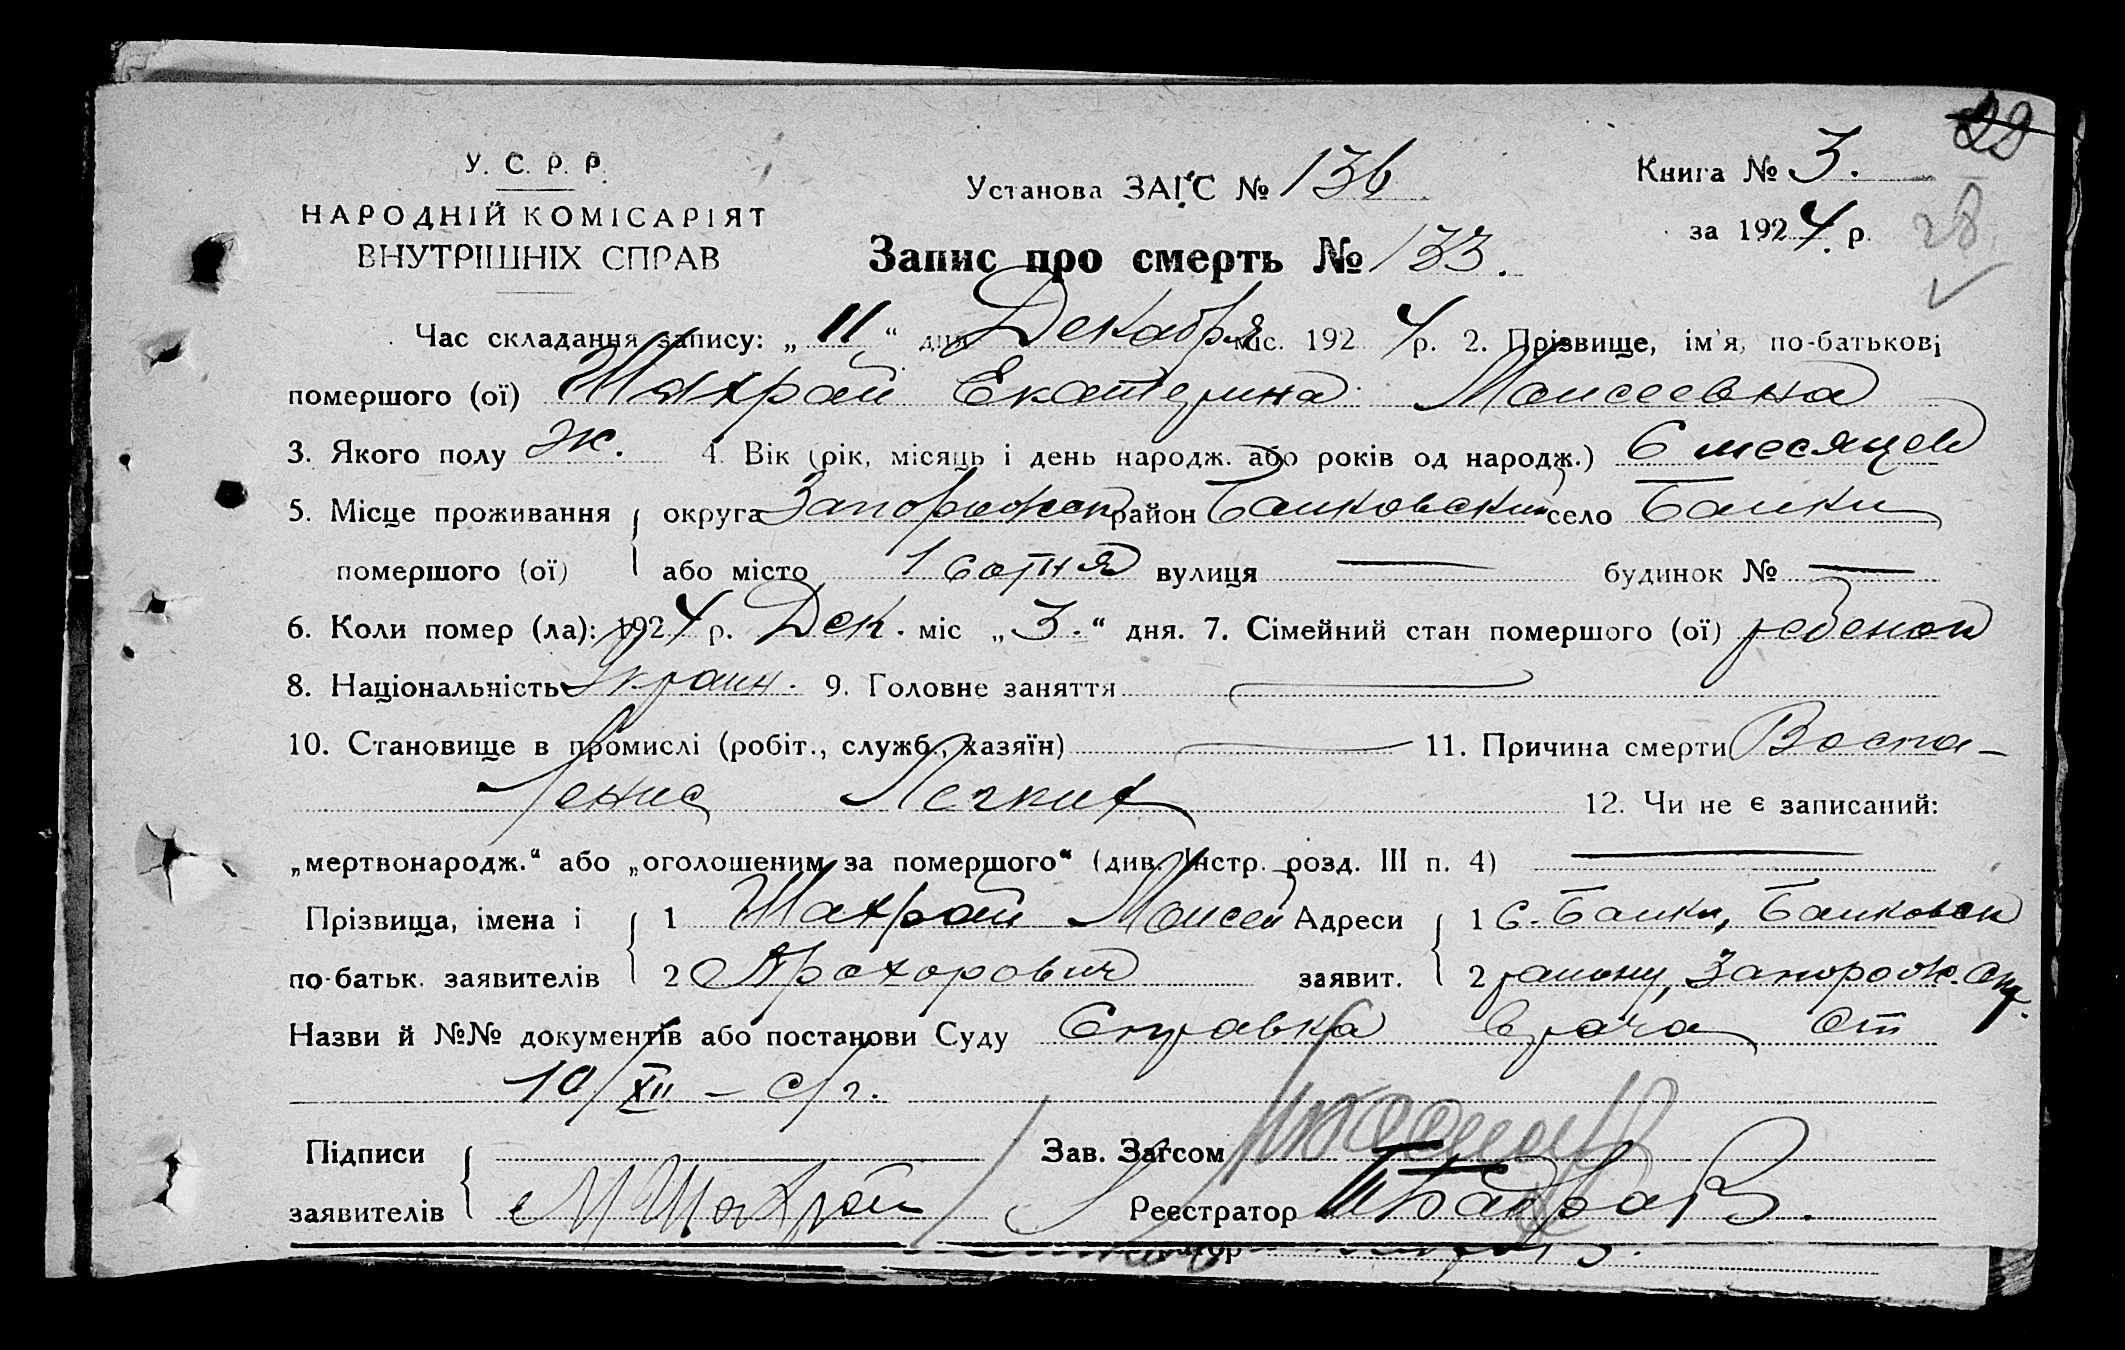 22
У. С. Р. Р.
НАРОДНІЙ КОМІСАРІЯТ
ВНУТРІШНІХ СПРАВ
Установа ЗАГС № 136
Книга № 3.
за 1924 р.
28
Запис про смерть № 133.
Час складання запису: „11“ дня Декабря міс. 1924 р. 2. Прізвище, ім'я, по-батькові
помершого (ої) Шахрай Екатерина Моисеевна
3. Якого полу ж. 4. Вік (рік, місяць і день народж. або років од народж.) 6 месяцев
5. Місце проживання округа Запорожск район Балковский село Балки
помершого (ої) або місто 1 сотня вулиця — будинок № —
6. Коли помер (ла): 1924 р. Дек. міс „3.“ дня. 7. Сімейний стан помершого (ої) ребенок
8. Національність Украин. 9. Головне заняття —
10. Становище в промислі (робіт., служб., хазяїн) — 11. Причина смерти Воспа-
ление Легких 12. Чи не є записаний:
„мертвонародж.“ або „оголошеним за помершого“ (див. Інстр. розд. III п. 4) —
Прізвища, імена і 1 Шахрай Моисей Адреси 1 с. Балки, Балковск
по-батьк. заявителів 2 Прохорович заявит. 2 району, Запорож. Окр.
Назви й №№ документів або постанови Суду Справка врача от
10/XII – с/г.
Підписи Зав. Загсом
заявителів М Шахрай Реєстратор